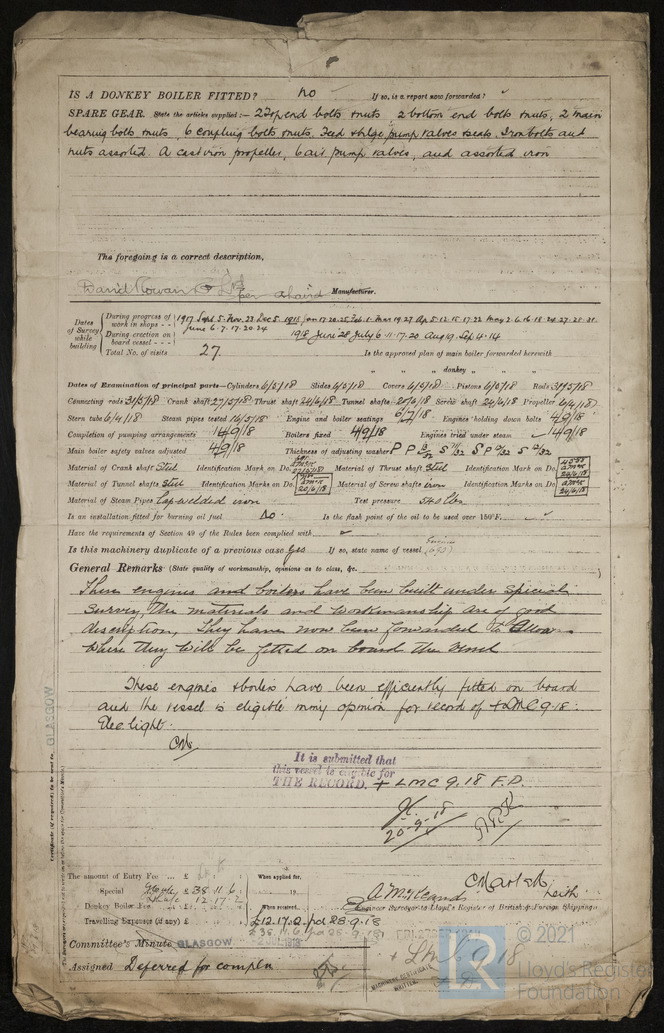 IS A DONKEY BOILER FITTED? no If so, is a report now forwarded?
SPARE GEAR. State the articles supplied:— 2 Top end bolts & nuts, 2 bottom end bolts & nuts, 2 main
bearing bolts & nuts, 6 coupling bolts & nuts, Feed & bilge pump valves & seats, Iron bolts and
nuts assorted. A cast iron propeller, 6 air pump valves, and assorted iron
The foregoing is a correct description,
David Rowan & Co Ld per Manufacturer.
Dates of Survey while building
During progress of work in shops - - 1917 Sept 5. Nov. 27 Dec 5. 1918 Jan 17.20.25. Feb. 1. Mar 19.27 Ap 5.12.15.17.22 May 2.6.16.18.24.27.28.31.
June 6.7.17.20.24
During erection on board vessel - - - 1918 June 28 July 6.11.17.20 Aug 19. Sep 4.14
Total No. of visits 27. Is the approved plan of main boiler forwarded herewith
" " " donkey " " "
Dates of Examination of principal parts—Cylinders 6/5/18 Slides 6/5/18 Covers 6/5/18 Pistons 6/5/18 Rods 31/5/18
Connecting rods 31/5/18 Crank shaft 27/5/18 Thrust shaft 24/6/18 Tunnel shafts 20/6/18 Screw shaft 24/6/18 Propeller 6/4/18
Stern tube 6/4/18 Steam pipes tested 16/5/18 Engine and boiler seatings 6/7/18 Engines holding down bolts 4/9/18
Completion of pumping arrangements 14/9/18 Boilers fixed 4/9/18 Engines tried under steam 14/9/18
Main boiler safety valves adjusted 4/9/18 Thickness of adjusting washers
Material of Crank shaft Steel Identification Mark on Do. Material of Thrust shaft Steel Identification Mark on Do.
Material of Tunnel shafts Steel Identification Marks on Do. 20/6/18 Material of Screw shafts iron Identification Marks on Do. 24/6/18
Material of Steam Pipes Lap welded iron Test pressure 540 lbs
Is an installation fitted for burning oil fuel no. Is the flash point of the oil to be used over 150°F.
Have the requirements of Section 49 of the Rules been complied with
Is this machinery duplicate of a previous case yes If so, state name of vessel
General Remarks (State quality of workmanship, opinions as to class, &c.
These engines and boilers have been built under special
survey, the materials and workmanship are of good
description, They have now been forwarded to Alloa
where they will be fitted on board the vessel
These engines & boilers have been efficiently fitted on board
and the vessel is eligible in my opinion for record of + LMC 9.18.
Elec light.
It is submitted that
this vessel is eligible for
THE RECORD. + LMC 9.18 F.D.
20-9-18
GLASGOW
The amount of Entry Fee ... £ : : When applied for,
Special £38.11.6. 19
Donkey Boiler Fee £ 12.17.2 When received,
Travelling Expenses (if any) £ : : £12.17.2 pd 28.9.18
£38.11.6. pd 28.9.18
Leith
Engineer Surveyor to Lloyd's Register of British & Foreign Shipping.
Committee's Minute GLASGOW
Assigned Deferred for compln
+ LMC 9.18
MACHINERY CERTIFICATE
WRITTEN.
LR © 2021
Lloyd's Register
Foundation